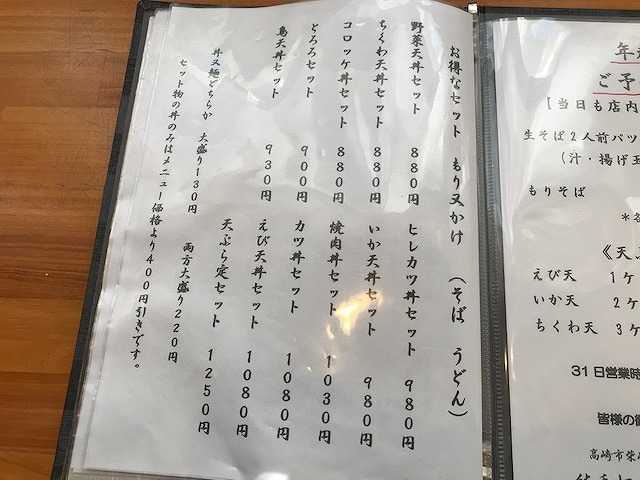 お得なセット もり又かけ (そば うどん)
野菜天丼セット 880円
ちくわ天丼セット 880円
コロッケ丼セット 880円
とろろセット 900円
鳥天丼セット 930円
ヒレカツ丼セット 980円
いか天丼セット 980円
焼肉丼セット 1030円
カツ丼セット 1080円
えび天丼セット 1080円
天ぷら定セット 1250円
丼又麺どちらか 大盛り130円 両方大盛り220円
セット物の丼のみはメニュー価格より400円引きです。
ご予
【当日も店内
生そば2人前パッ
(汁・揚げ玉
もりそば
《天ぷ
えび天 1ケ
いか天 2ケ
ちくわ天 3ケ
31日営業時
皆様の御
高崎市柴崎